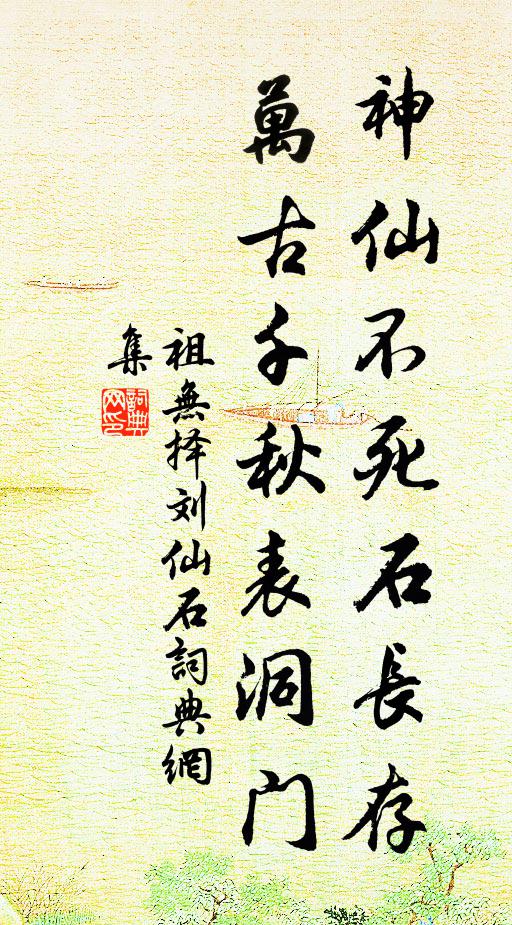 神仙不死石長存
萬古千秋表洞门
祖無择刘仙石詞典網
集
詞典
网印